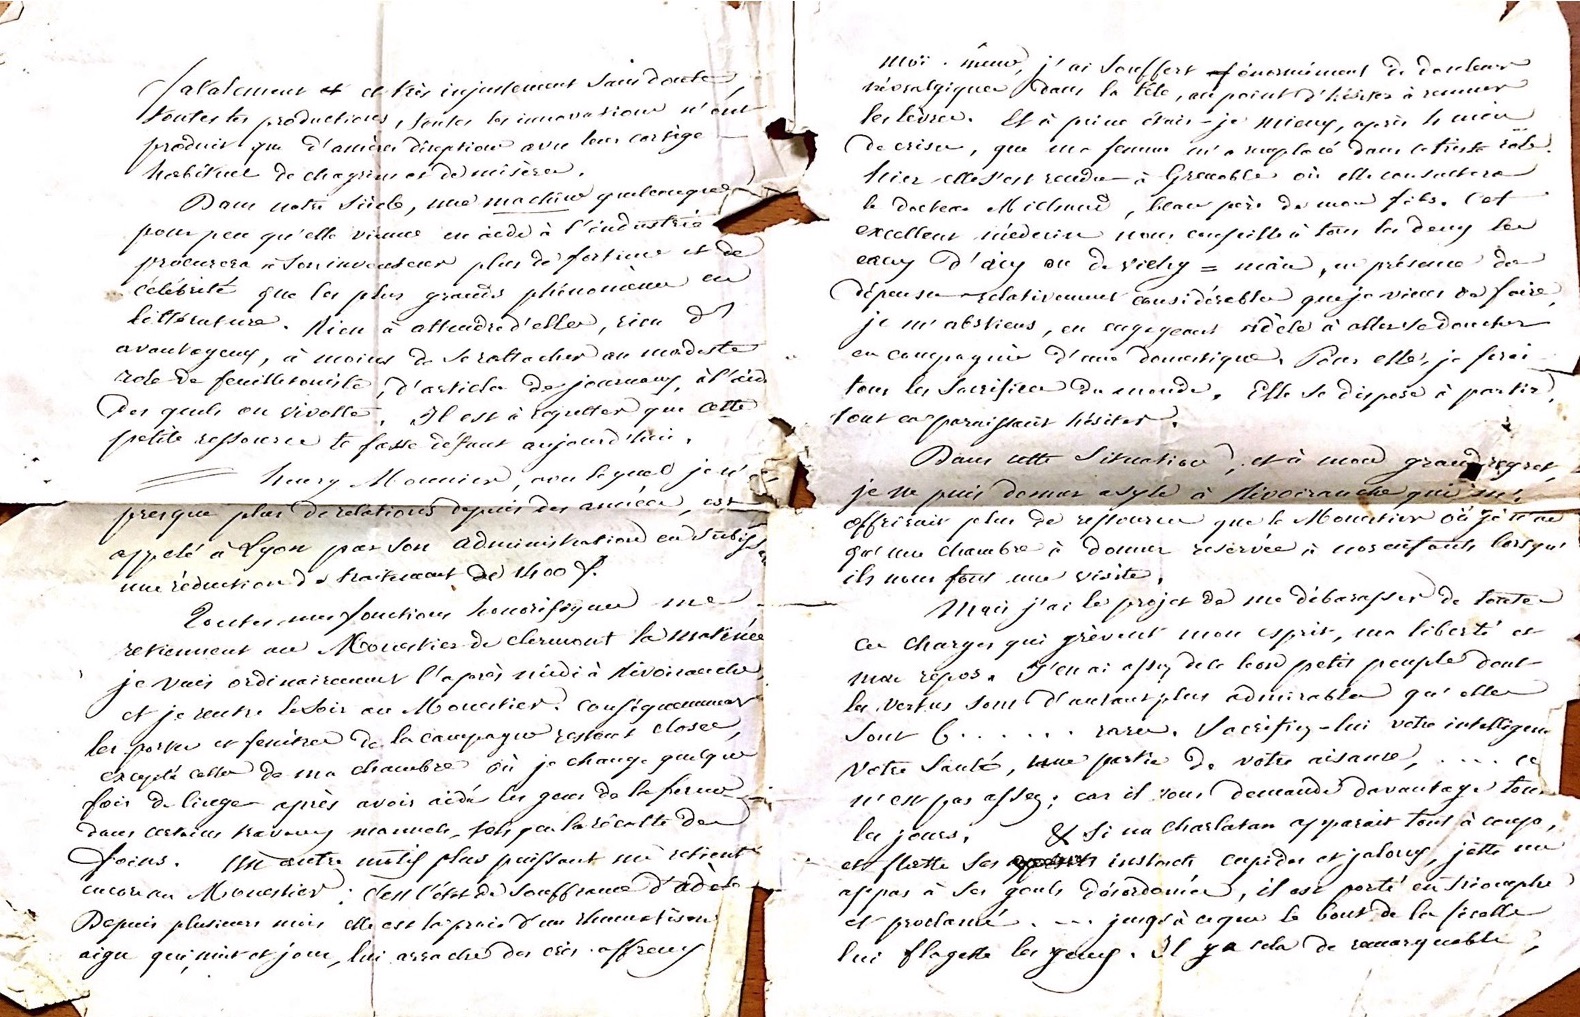 fatalement et très injustement sans doute,
toutes les productions, toutes les innovations n'ont
produit que d'amères déceptions avec leur cortège
habituel de chagrins et de misères.
Dans notre siècle, une machine quelconque
pour peu qu'elle vienne en aide à l'industrie
procurera à son inventeur plus de fortune et de
célébrité que les plus grands phénomènes en
littérature. Rien à attendre d'elle, rien d'
avantageux, à moins de se rattacher au modeste
role de feuilletoniste, d'articles de journaux, à l'aide
des quels on vivotte. Il est à regretter que cette
petite ressource te fasse défaut aujourd'hui.
henry Monnier, avec lequel je n'ai
presque plus de relations depuis des années, est
appelé à Lyon par son administration en subissant
une réduction de traitement de 1400 f.
Toutes mes fonctions honorifiques me
retiennent au Monestier de clermont la matinée
je vais ordinairement l'après midi à Rivoiranche,
et je rentre le soir au Monestier. Conséquemment
les portes et fenêtres de la campagne restent closes,
excepté celle de ma chambre où je change quelque
fois de linge après avoir aidé les gens de la ferme
dans certains travaux manuels, tels que la récolte des
foins. Un autre motif plus puissant me retient
encore au Monestier : c'est l'état de souffrance d'adèle
Depuis plusieurs mois elle est la proie d'un rhumatisme
aigu qui, nuit et jour, lui arrache des cris affreux
moi-même, j'ai souffert énormément de douleurs
névralgiques dans la tête, au point d'hésiter à remuer
les lèvres. Et à peine étais-je mieux, après le mois
de crises, que ma femme m'a remplacé dans ce triste rôle.
hier elle s'est rendue à Grenoble où elle consultera
le docteur Michaud, beau père de mon fils. Cet
excellent médecin nous conseille à tous les deux les
eaux d'aix ou de vichy = mais, en présence des
dépenses relativement considérables que je viens de faire,
je m'abstiens, en engageant adèle à aller se doucher
en compagnie d'une domestique. Pour elle, je ferai
tous les sacrifices du monde. Elle se dispose à partir,
tout en paraissant hésiter.
Dans cette situation, et à mon grand regret,
je ne puis donner asyle à Rivoiranche qui m'
offrirait plus de ressources que le Monestier où je n'ai
qu'une chambre à donner reservée à nos enfants lorsqu'
ils nous font une visite.
Mais j'ai le projet de me débarasser de toutes
ces charges qui grèvent mon esprit, ma liberté et
mon repos. J'en ai assez de ce bon petit peuple dont
les vertus sont d'autant plus admirables qu'elles
sont b . . . . . . rares. Sacrifiez-lui votre intelligence
votre santé, une partie de votre aisance, . . . . ce
n'est pas assez ; car il vous demande davantage tous
les jours. & si un charlatan apparait tout à coup,
et flatte ses instincts cupides et jaloux, jette un
appas à ses gouts désordonnés, il est porté en triomphe
et proclamé . . . jusqu'à ce que le bout de la ficelle
lui flagelle les yeux. Il y a cela de remarquable,